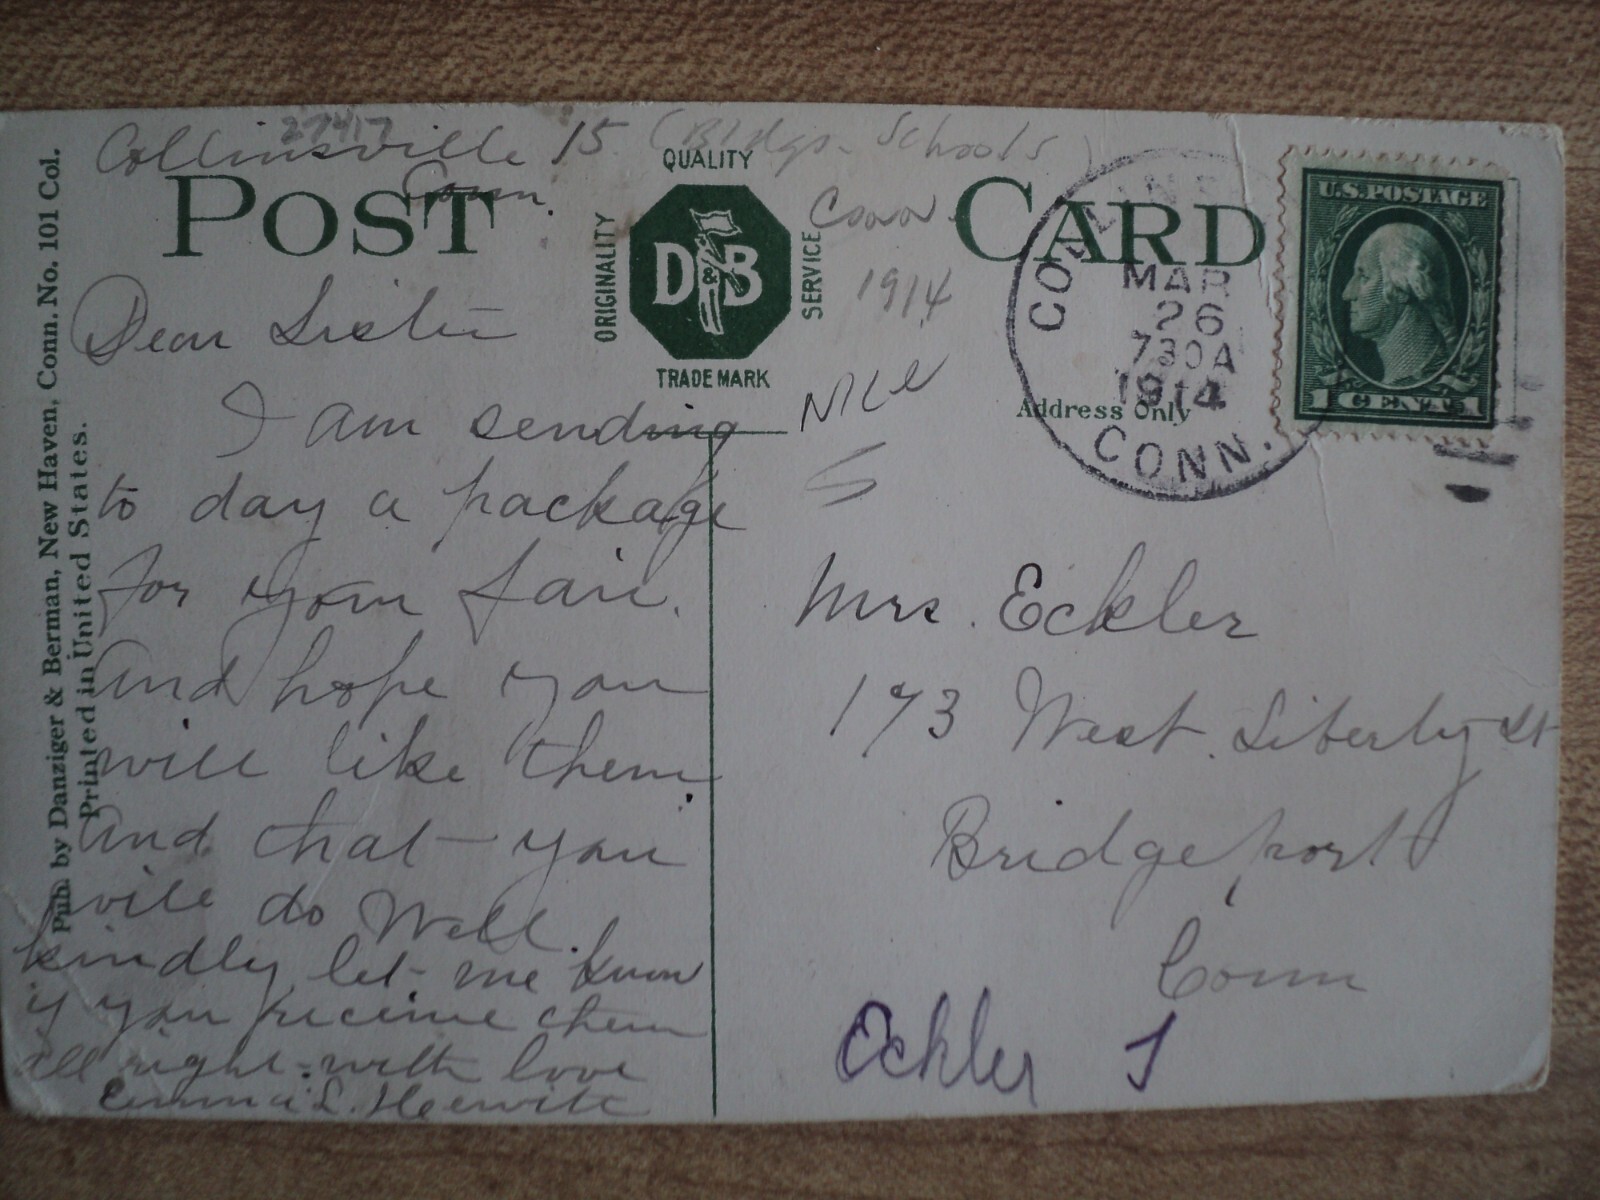 27417
Collinsville 15 (Bldgs. Schools)
Conn.
POST CARD
QUALITY
ORIGINALITY
D&B
SERVICE
TRADE MARK
Conn.
1914
Nice
5
COLLINS
MAR
26
730A
1914
CONN.
U.S. POSTAGE
1 CENT 1
Address Only
Dear Sister
I am sending
to day a package
for your fair.
and hope you
will like them
and that you
will do Well.
kindly let me know
if you receive them
all right. with love
Emma L. Hewitt
Mrs. Eckler
173 West Liberty St
Bridgeport
Conn
Eckler
Pub. by Danziger & Berman, New Haven, Conn. No. 101 Col.
Printed in United States.